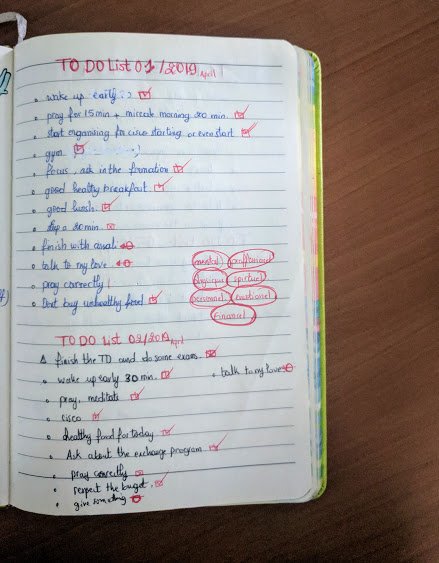 TO DO List 01/2019 April
wake up early :)
pray for 15 min + miracle morning 20 min
start organising for cisco starting or even start
gym
focus, ask in the formation
good healthy breakfast
good lunch
20 min
finish with
talk to my love
pray correctly !
Dont buy unhealthy food
mental professional
physique spirtuel
personnel emotionel
financel
TO DO List 02/2019 April
finish the TD and do some exam.
wake up early 30 min.
talk to my love
pray, meditate
cisco
healthy food for today
Ask about the exchange program.
pray correctly
respect the buget.
give something